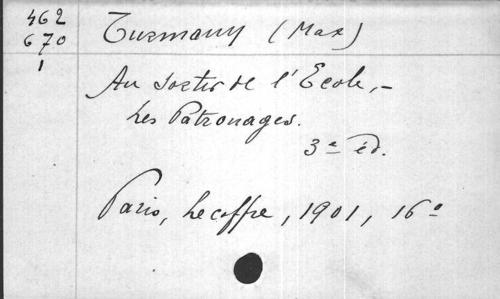 462
670
1
Turmann (Max)
Au sortir de l'Ecole,-
Les Patronages.
3e éd.
Paris, Lecoffre, 1901, 16°